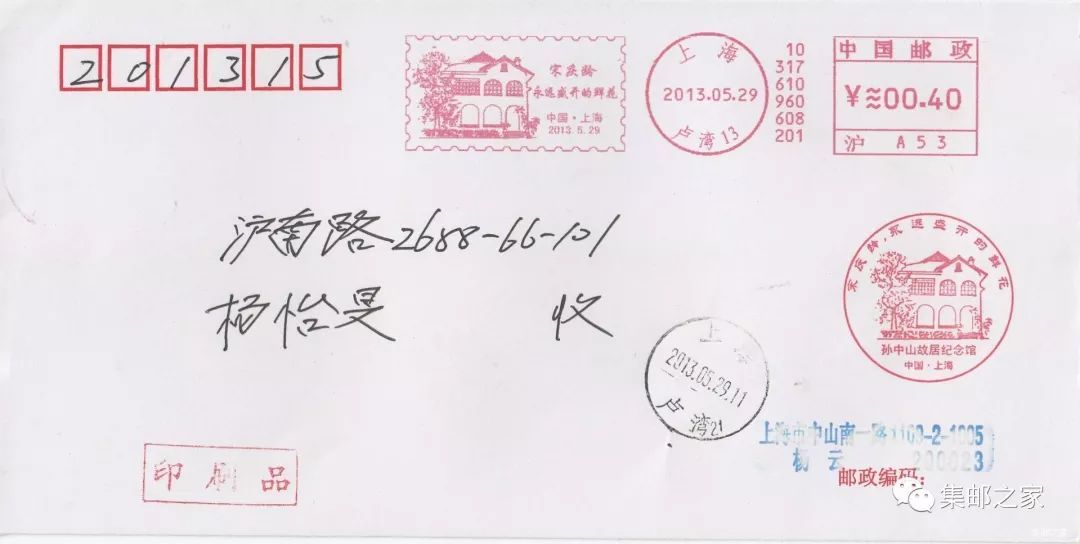 201315
宋庆龄
永远盛开的鲜花
中国·上海
2013.5.29
上海
2013.05.29
卢湾13
10
317
610
960
608
201
中国邮政
¥≈00.40
沪 A53
沪南路2688-66-101
杨怡旻 收
宋庆龄,永远盛开的鲜花
孙中山故居纪念馆
中国·上海
上海
2013.05.29.11
卢湾21
上海市中山南一路1109-2-1005
杨云 200023
邮政编码:
印刷品
集邮之家